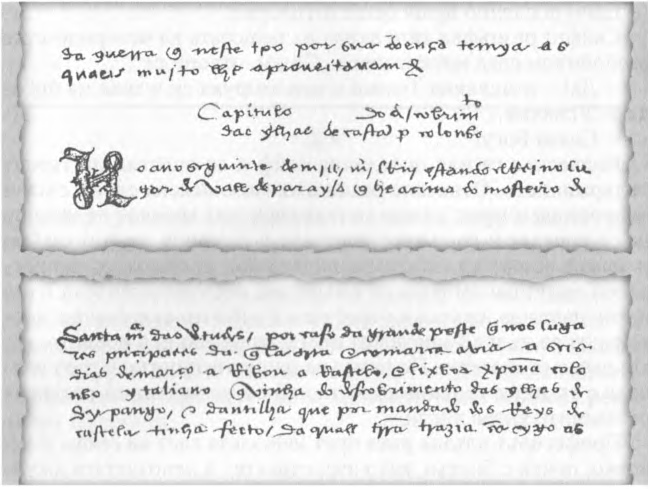 da guerra q̃ neste tpo por sua doença temya as
quaes muito lhe aproueitaram
Capitulo do descobrim^to
das ylhas de castela p colonbo
No ano seguinte de mil iiij lRiij estando el Rei no lu
gar do Vall de parayso q̃ he acima do mosteiro de
Sancta m^a das Vertudes, por causa da grande peste q̃ nos luga
res principaes da q̃lla comarca avia a seis
dias de março a Ribou a Rastelo, e lixboa xpouã colo
nbo ytaliano q̃ vinha do descobrimento das ylhas de
Cypango, e dantilha que por mandado dos Reys de
castela tinha fecto, da quall tr̃ra trazia consygo as